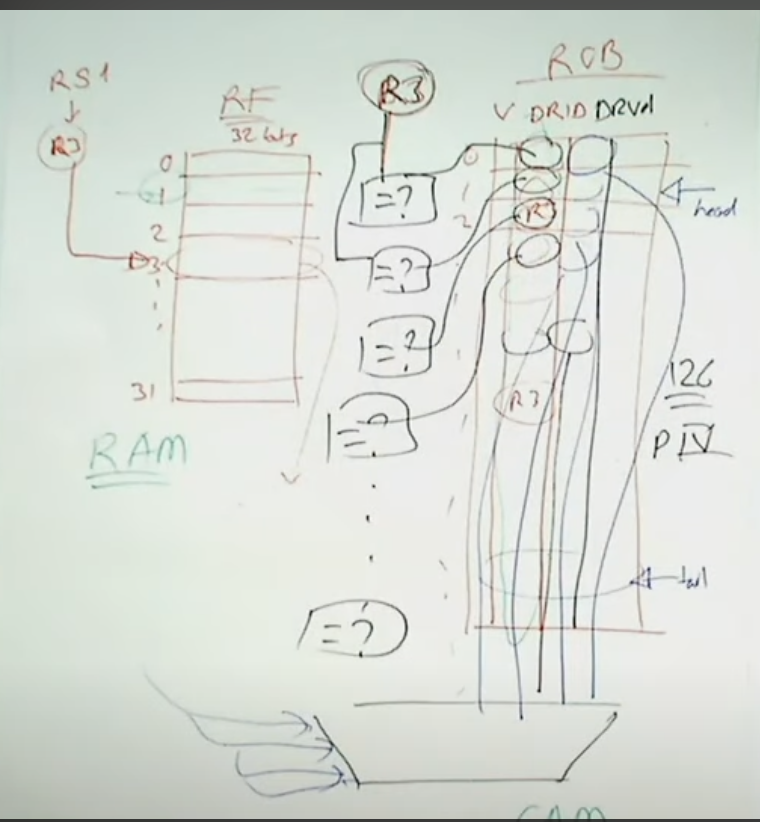 RS1
R3
RF
32 bits
0
1
2
3
31
RAM
R3
=?
=?
=?
=?
=?
ROB
V DRID DRVal
0
1
2
R
R3
head
126
PIV
tail
CAM